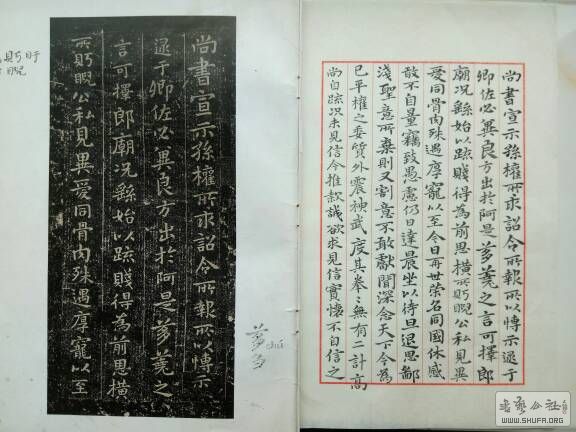 尚書宣示孫權所求詔令所報所以博示逮于
卿佐必冀良方出於阿是芻蕘之言可擇郎
廟況繇始以疏賤得為前恩橫所眄睨公私見異
愛同骨肉殊遇厚寵以至今日再世榮名同國休感
敢不自量竊致愚慮仍日達晨坐以待旦退思鄙
淺聖意所棄則又割意不敢獻聞深念天下今為
已平權之委質外震神武度其拳〻無有二計高
尚自疏況未見信今推款誠欲求見信實懷不自信之
尚書宣示孫權所求詔令所報所以博示
逮于卿佐必冀良方出於阿是芻蕘之
言可擇郎廟況繇始以疏賤得為前恩橫
所眄睨公私見異愛同骨肉殊遇厚寵以至
芻
chú
WWW.SHUFA.ORG